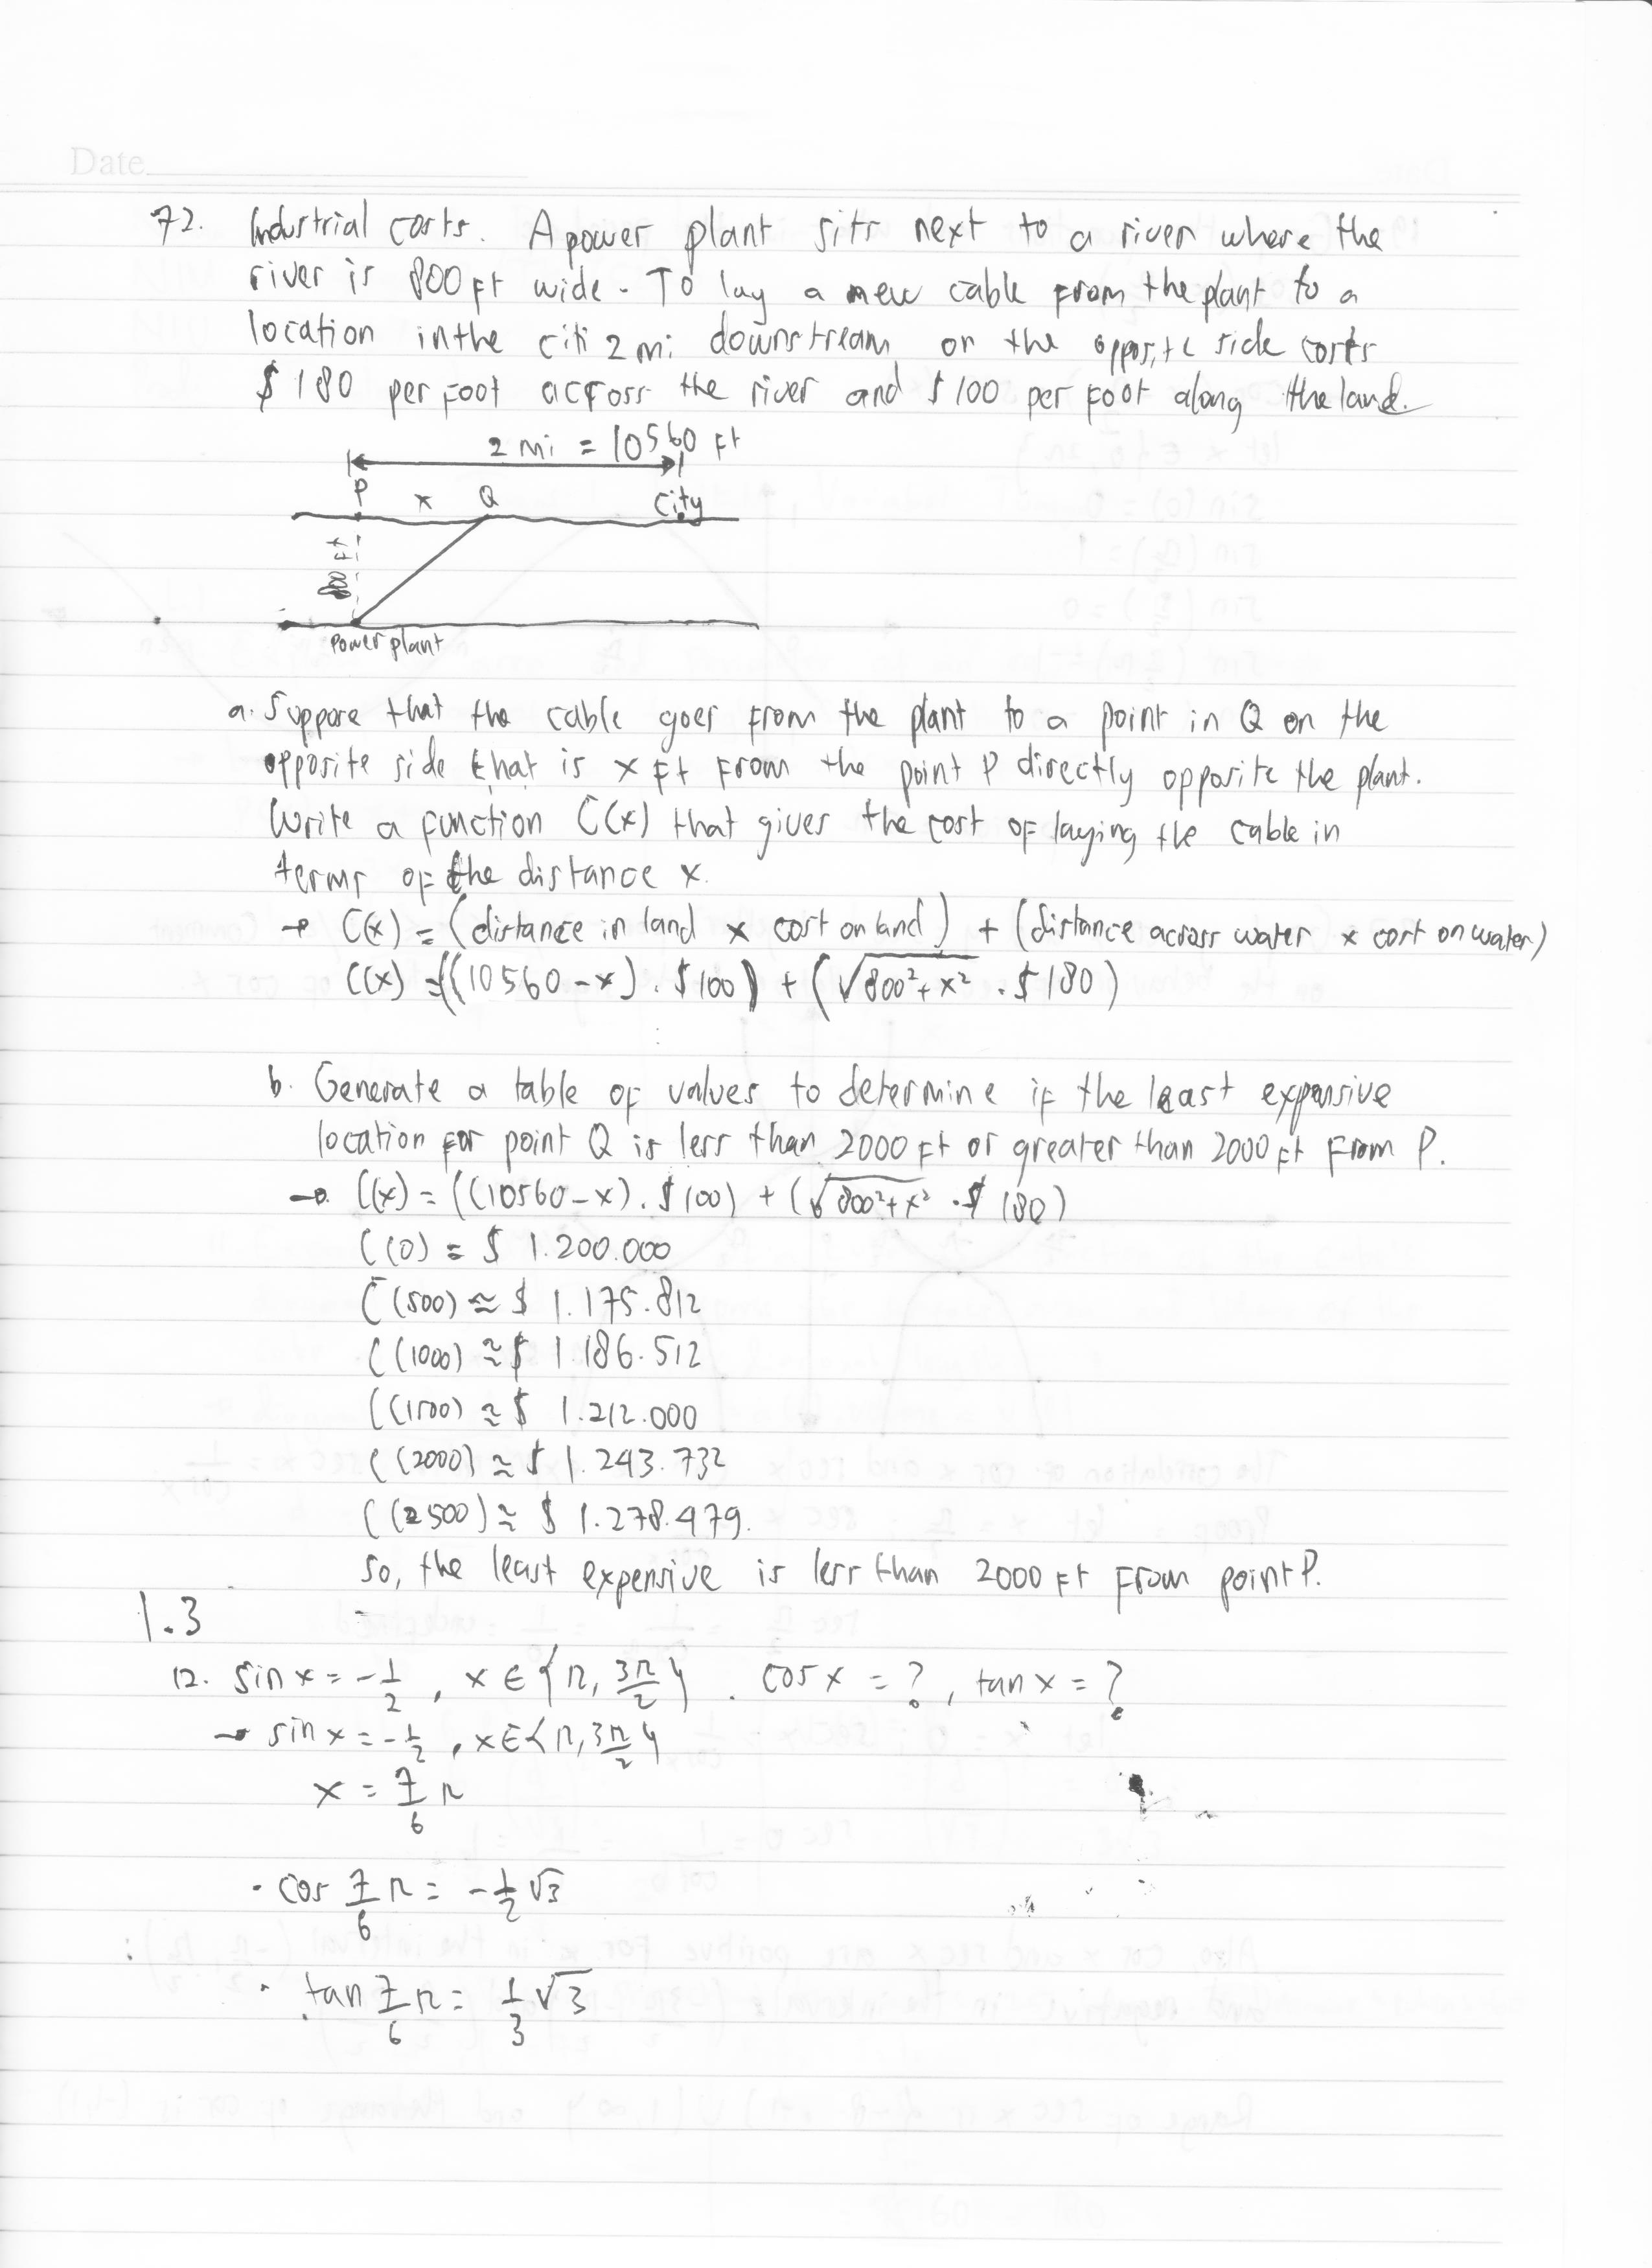 Date
72. Industrial costs. A power plant sits next to a river where the
river is 800 ft wide. To lay a new cable from the plant to a
location in the citi 2 mi downstream on the opposite side costs
$ 180 per foot across the river and $ 100 per foot along the land.
2 mi = 10560 ft
P x Q City
800 ft
Power plant
a. Suppose that the cable goes from the plant to a point in Q on the
opposite side that is x ft from the point P directly opposite the plant.
Write a function C(x) that gives the cost of laying the cable in
terms of the distance x.
→ C(x) = (distance in land × cost on land) + (distance across water × cost on water)
C(x) = ((10560-x) . $ 100) + (√800²+x² . $ 180)
b. Generate a table of values to determine if the least expensive
location for point Q is less than 2000 ft or greater than 2000 ft from P.
→ C(x) = ((10560-x) . $ 100) + (√800²+x² . $ 180)
C(0) = $ 1.200.000
C(500) ≈ $ 1.175.812
C(1000) ≈ $ 1.186.512
C(1500) ≈ $ 1.212.000
C(2000) ≈ $ 1.243.732
C(2500) ≈ $ 1.278.479.
so, the least expensive is less than 2000 ft from point P.
1.3
12. sin x = -1/2 , x ∈ {π, 3π/2} . cos x = ? , tan x = ?
→ sin x = -1/2 , x ∈ {π, 3π/2}
x = 7/6 π
· cos 7/6 π = -1/2 √3
· tan 7/6 π = 1/3 √3